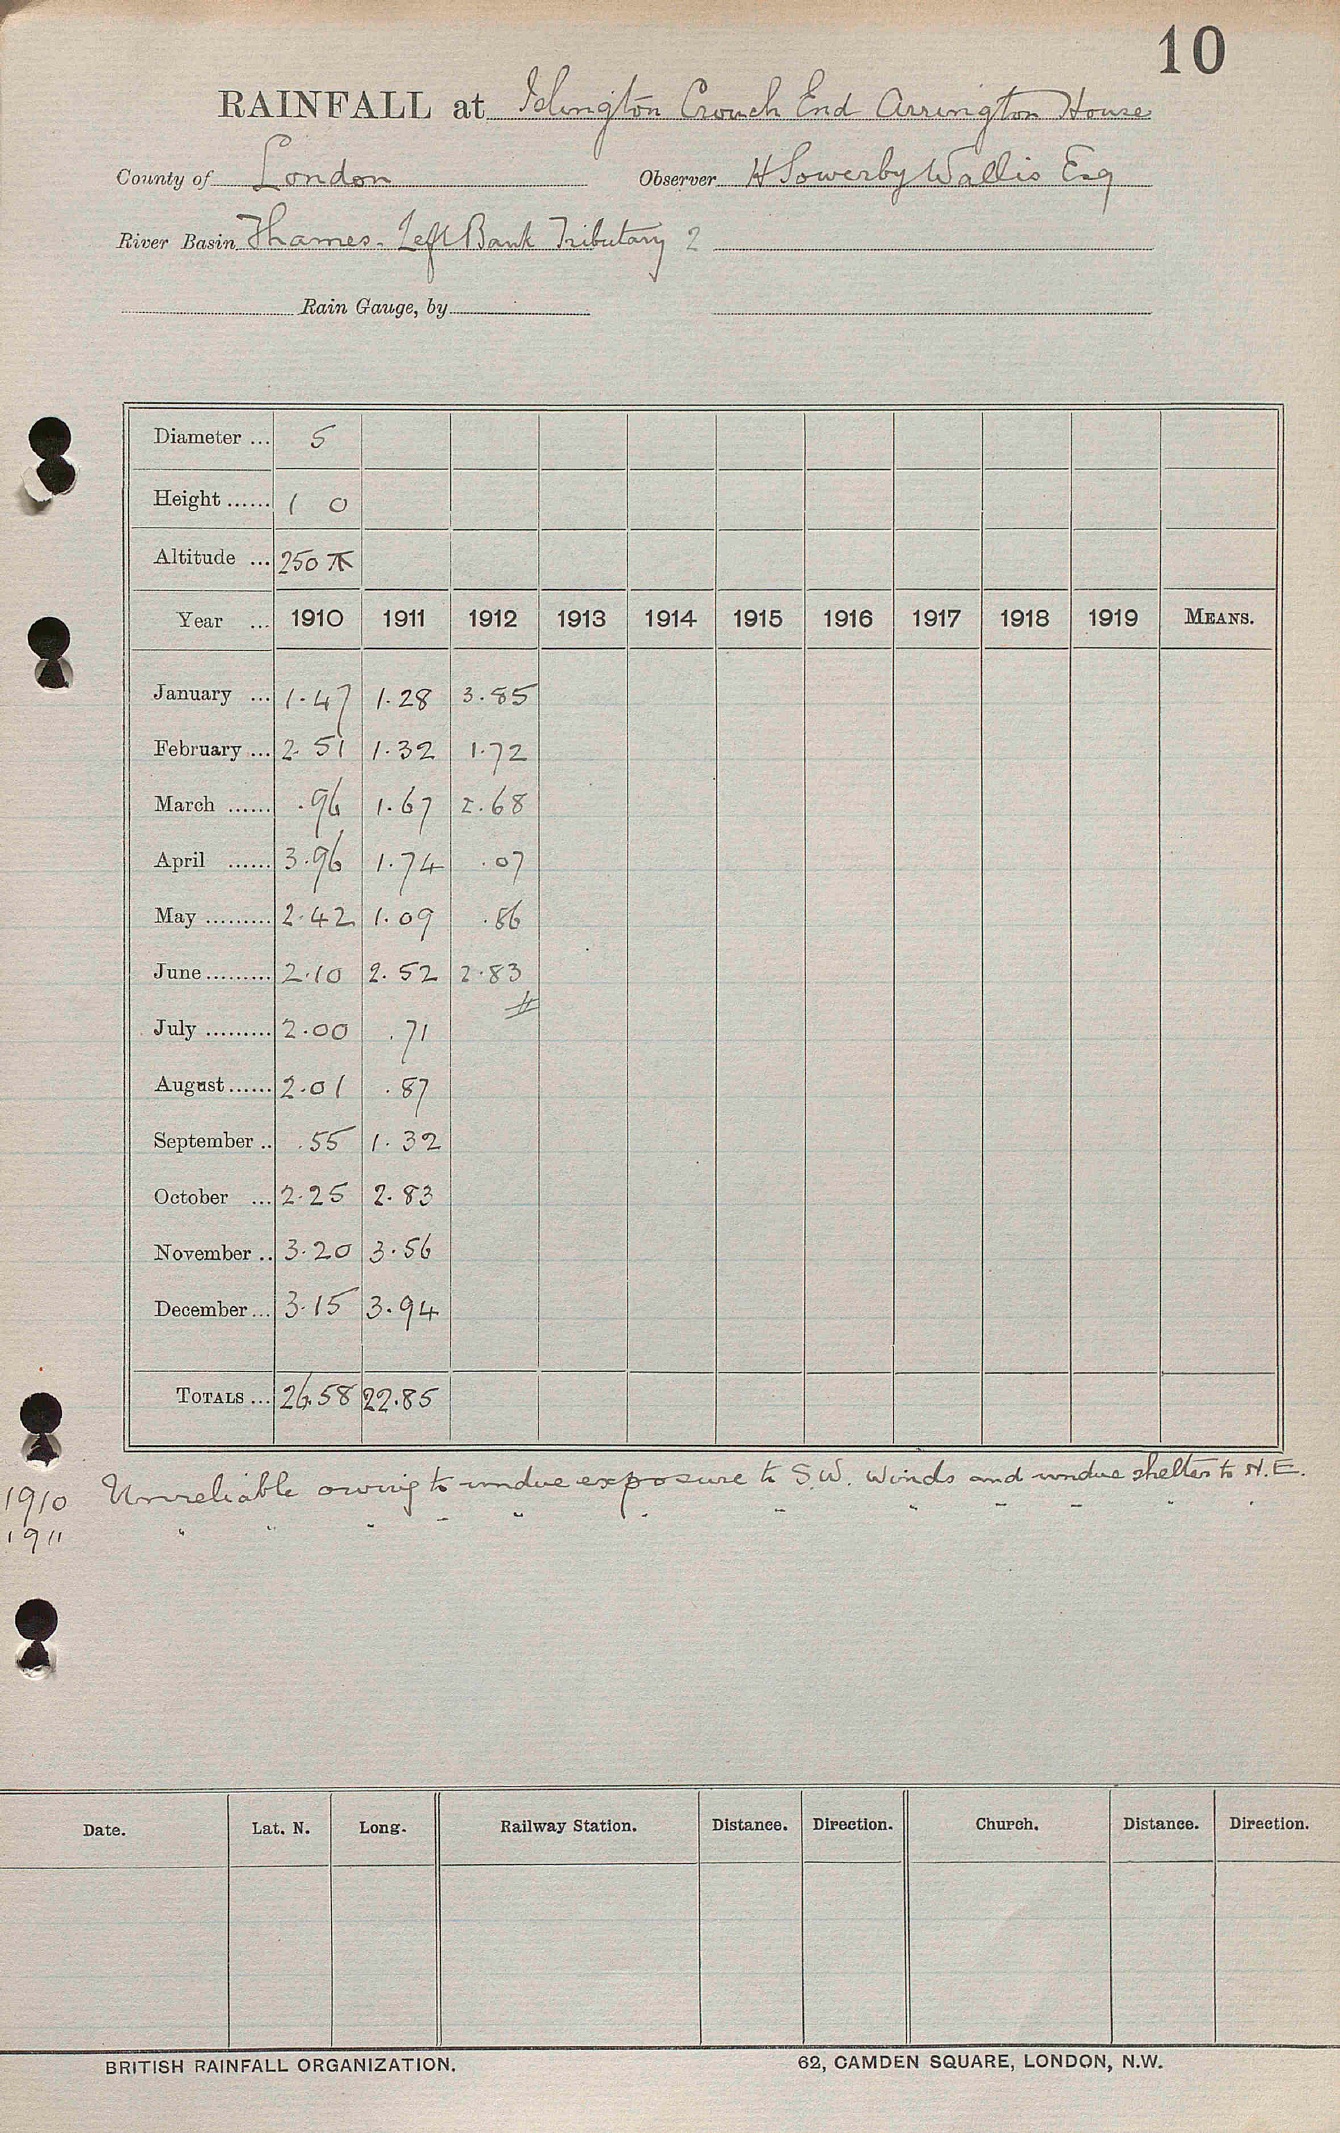 10
RAINFALL at Islington Crouch End Arrington House
County of London Observer H Sowerby Wallis Esq
River Basin Thames. Left Bank Tributary 2
Rain Gauge, by
Diameter ... 5
Height ...... 1 0
Altitude ... 250
Year ... 1910 1911 1912 1913 1914 1915 1916 1917 1918 1919 MEANS.
January ... 1.47 1.28 3.85
February ... 2.51 1.32 1.72
March ...... .96 1.67 2.68
April ...... 3.96 1.74 .07
May ......... 2.42 1.09 .86
June ......... 2.10 2.52 2.83
July ......... 2.00 .71
August ...... 2.01 .87
September .. .55 1.32
October ... 2.25 2.83
November .. 3.20 3.56
December ... 3.15 3.94
TOTALS ... 26.58 22.85
1910 Unreliable owing to undue exposure to S.W. winds and undue shelter to N.E.
1911 " " " " " " " " " " " "
Date. Lat. N. Long. Railway Station. Distance. Direction. Church. Distance. Direction.
BRITISH RAINFALL ORGANIZATION. 62, CAMDEN SQUARE, LONDON, N.W.